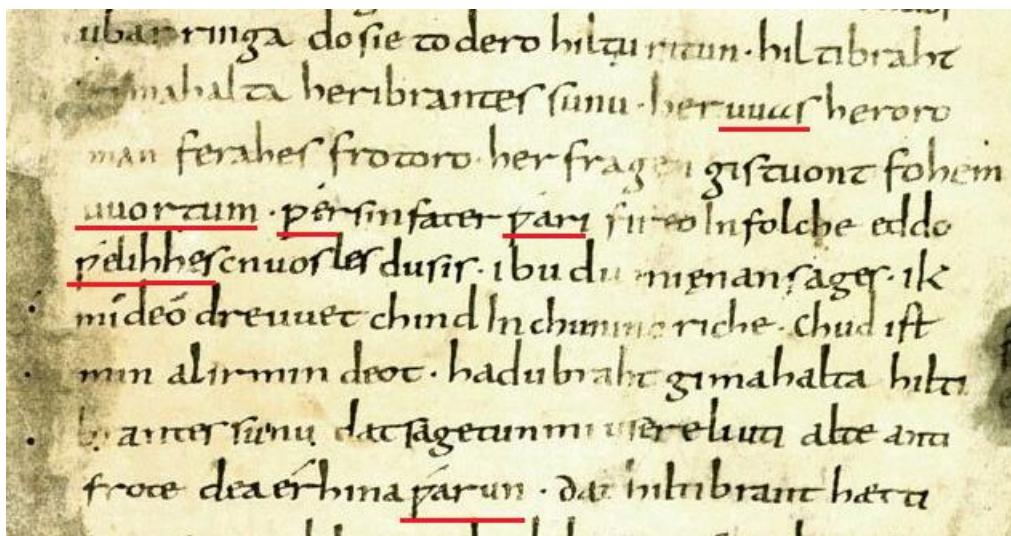 ubar ringa do sie to dero hiltu ritun · hiltibraht
gimahalta heribrantes sunu · her uuas heroro
man ferahes frotoro · her fragen gistuont fohem
uuortum · ƿ́er sin fater ƿ́ari fireo In folche eddo
ƿ́elihhes cnuosles du sis · ibu du mi ęnan sages · ik
mideo dre uuet chind In chunincriche · Chud ist
min al irmin deot · hadubraht gimahalta hilti
brantes sunu dat sagetun mi usere liuti alte anti
frote dea érhina ƿ́arun · dat hiltibrant hætti